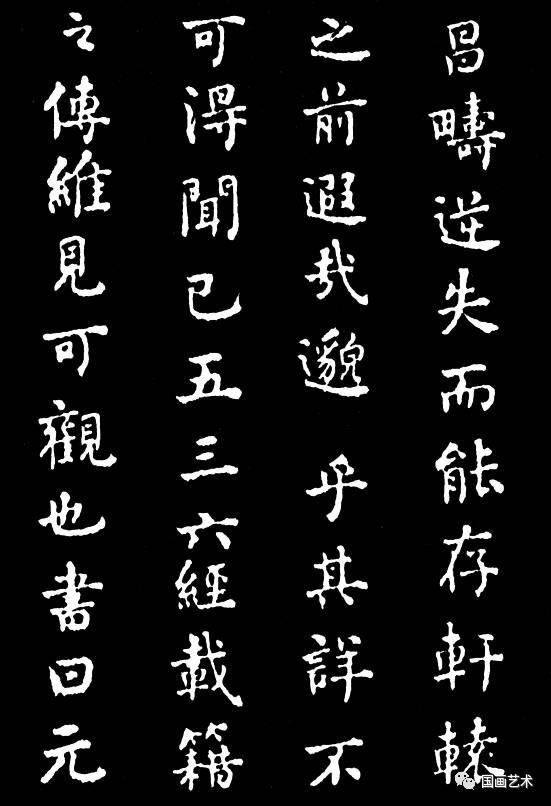 昌疇逆失而能存軒轅
之前遐哉邈乎其詳不
可得聞已五三六經載籍
之傳維見可觀也書曰元
国画艺术